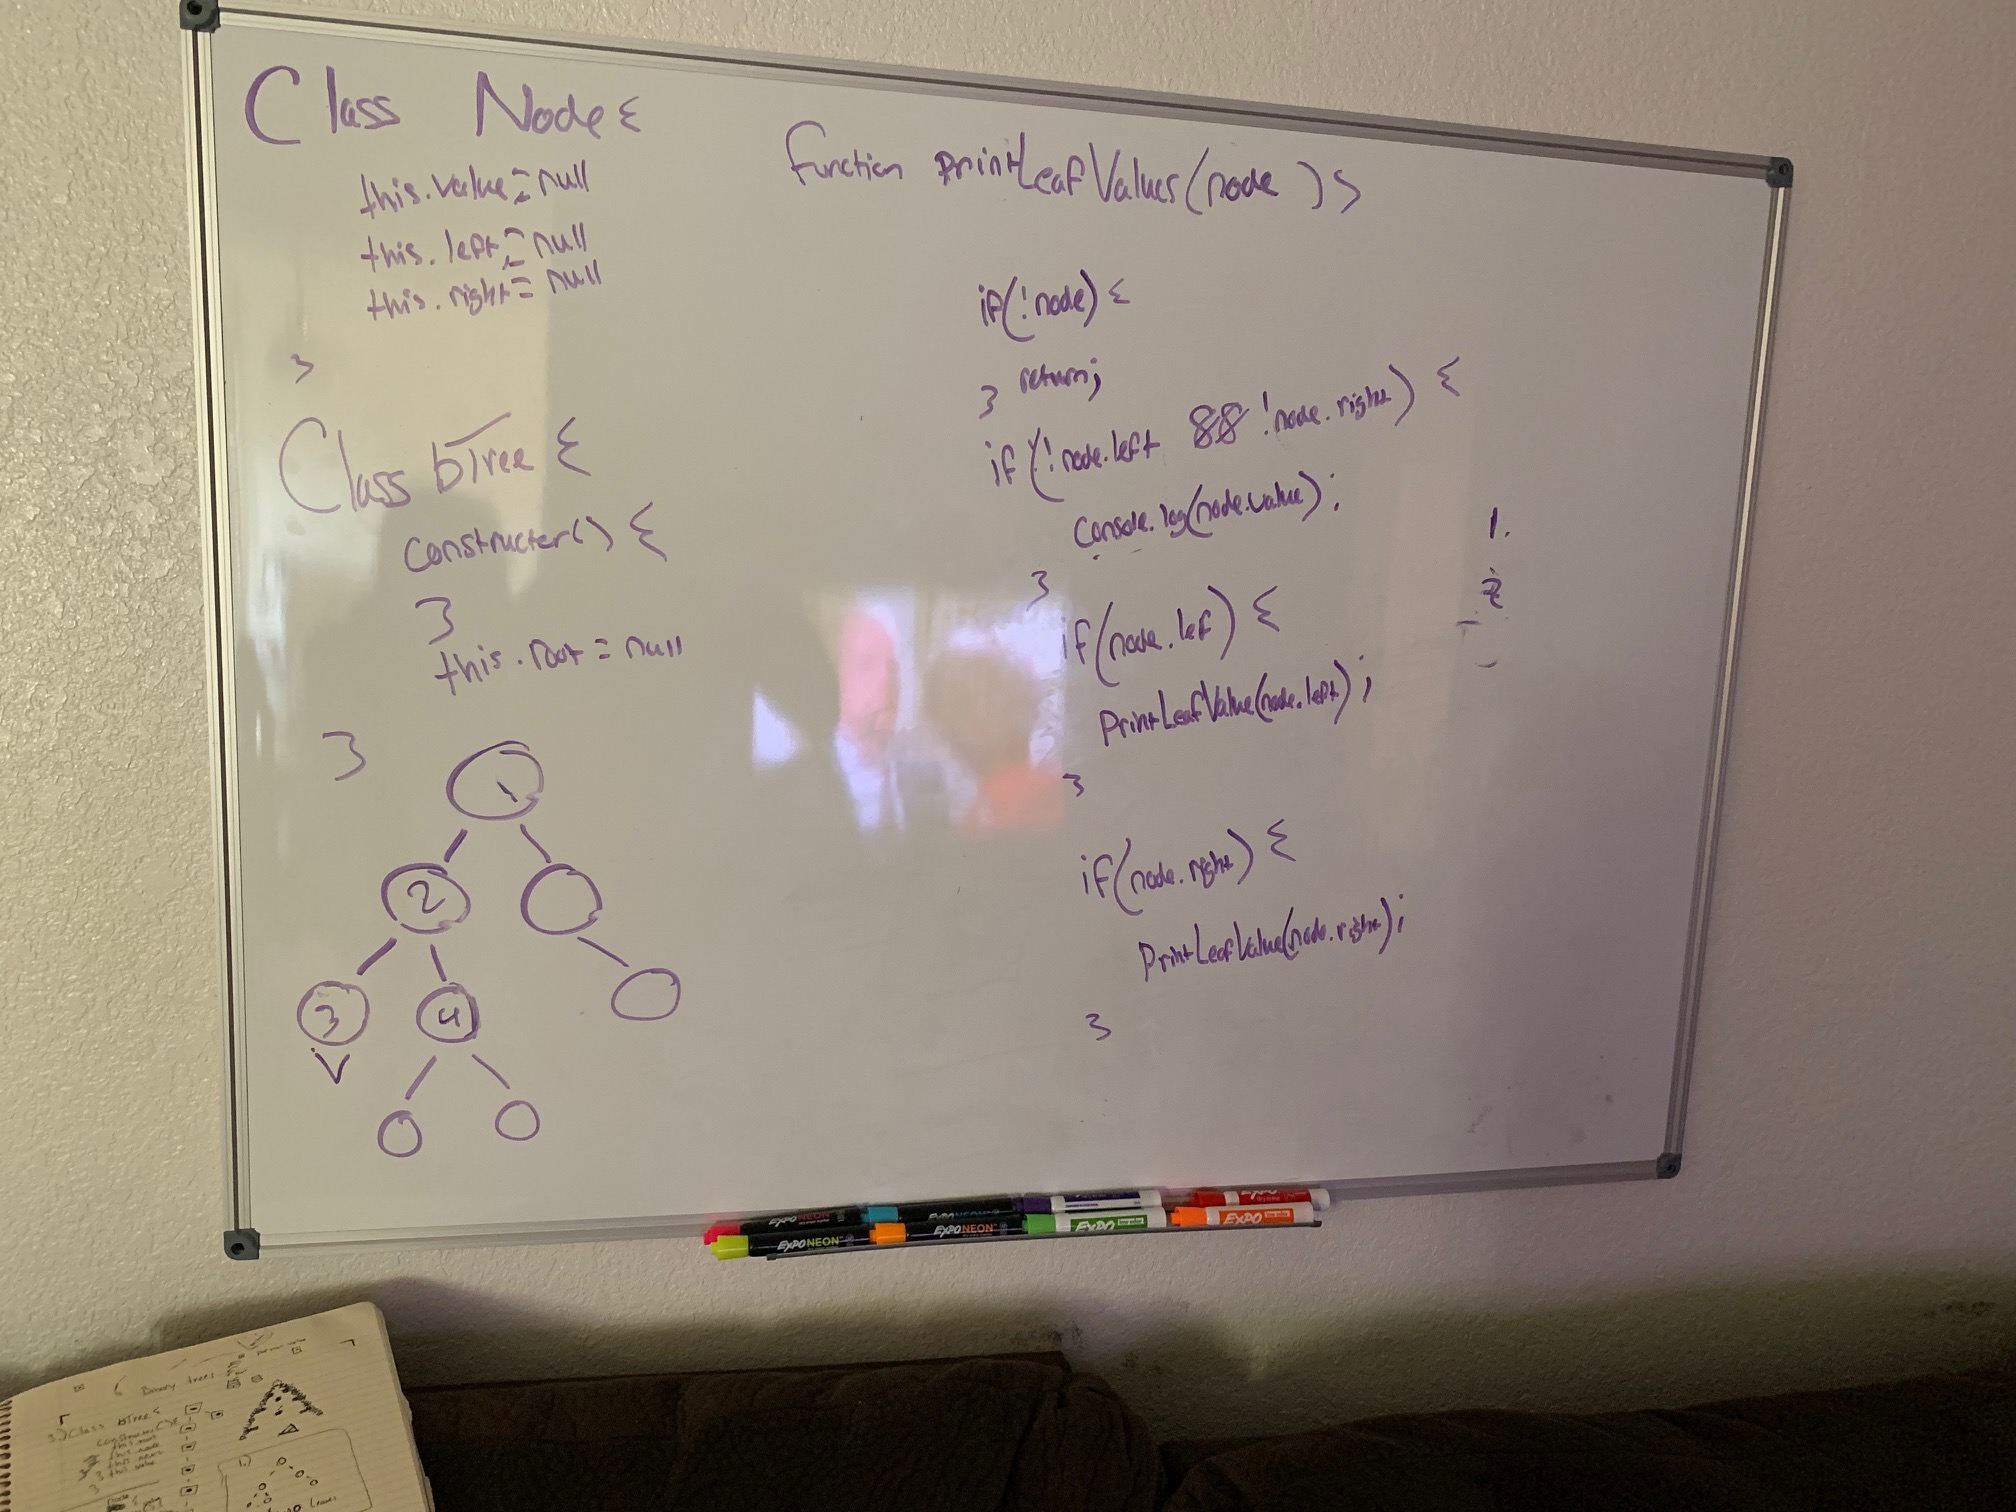 Class Node {
this.value = null
this.left = null
this.right = null
}
Class bTree {
constructer() {
}
this.root = null
}
1
2
3
4
function printLeafValues(node) {
if(!node) {
return;
}
if(!node.left && !node.right) {
console.log(node.value);
}
if(node.lef) {
PrintLeafValue(node.left);
}
if(node.right) {
PrintLeafValue(node.right);
}
1.
2
EXPO NEON
EXPO NEON
EXPO NEON
EXPO
EXPO
EXPO
Binary trees
Class bTree {
constructor() {
Leaves